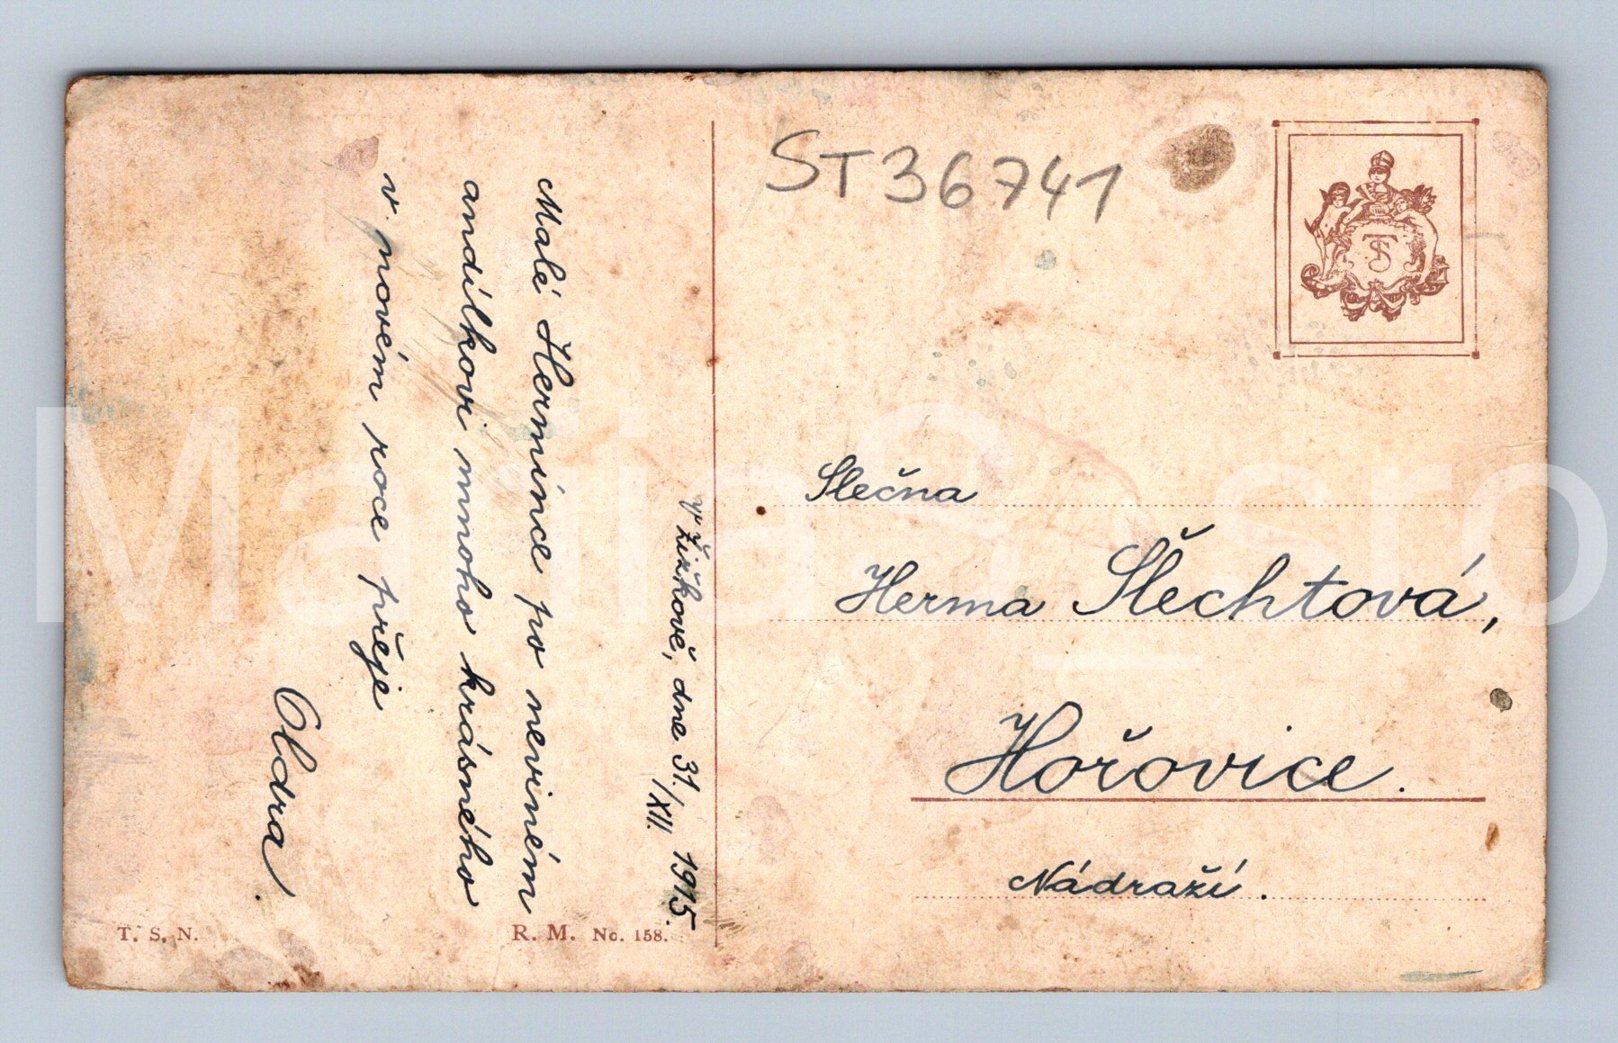 v Žižkově, dne 31./XII. 1915.
Malé Hermínce po nevinném
andílkovi mnoho krásného
v novém roce přeje
Oldra.
T. S. N.
R. M. No. 158.
ST36741
TS
Slečna
Herma Šlechtová,
Hořovice.
Nádraží.